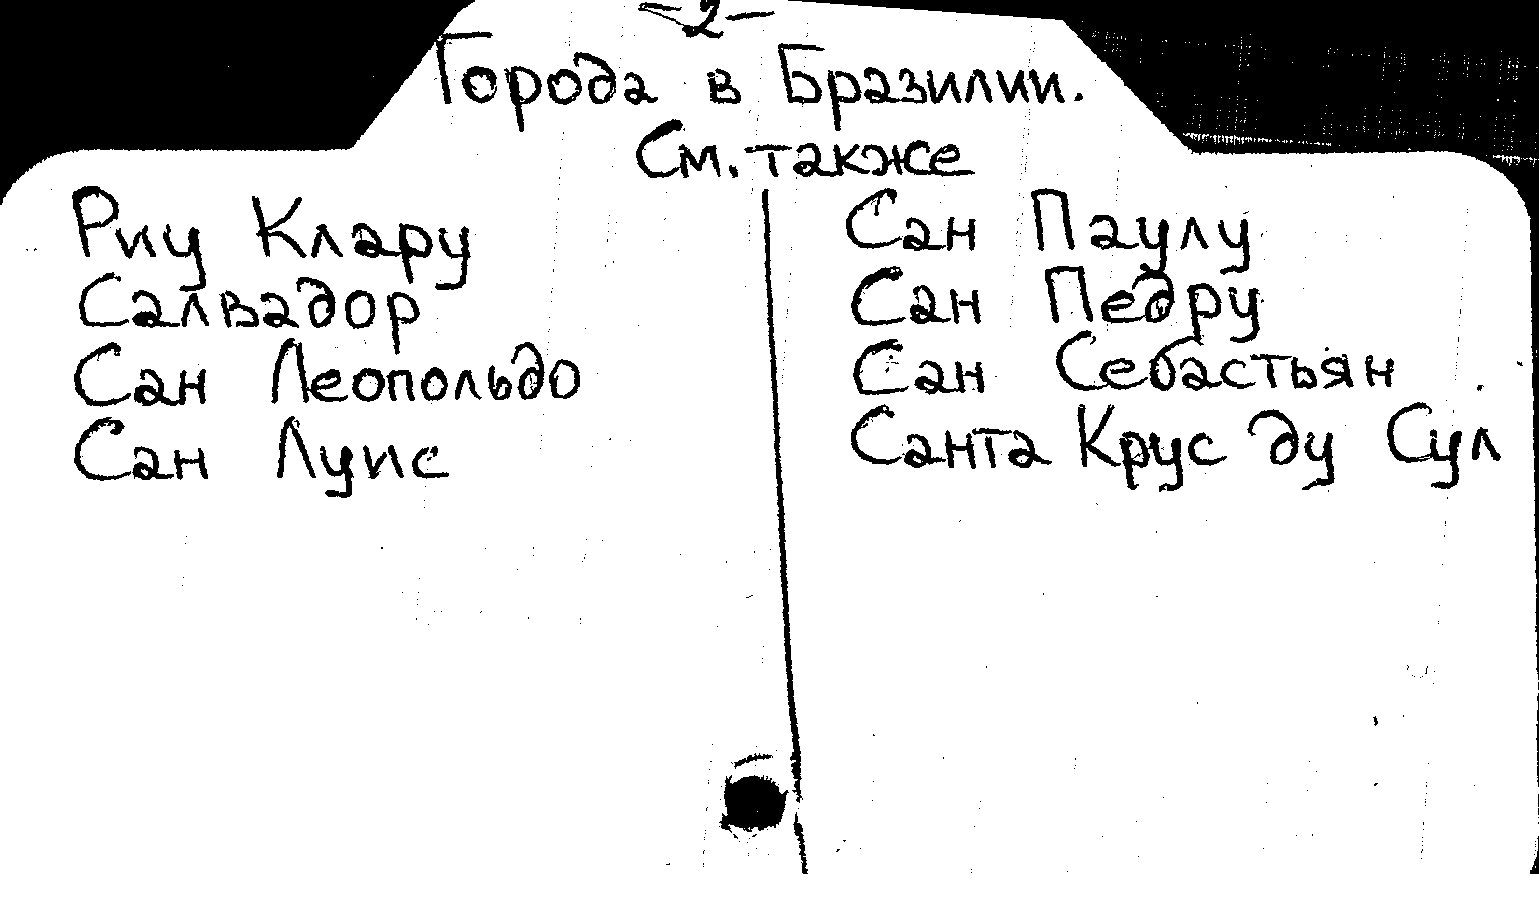 -2-
Города в Бразилии.
См. также
Риу Клару
Салвадор
Сан Леопольдо
Сан Луис
Сан Паулу
Сан Педру
Сан Себастьян
Санта Крус ду Сул